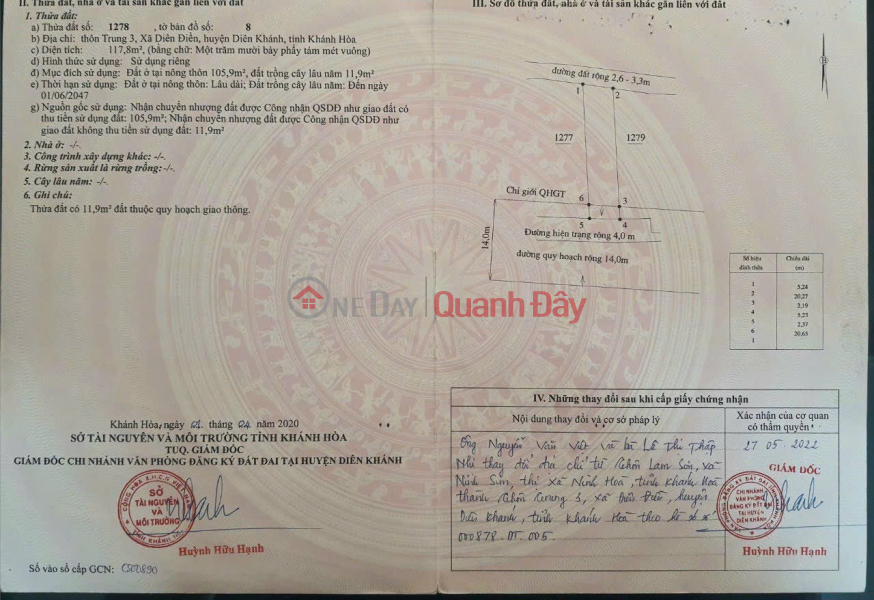 II. Thửa đất, nhà ở và tài sản khác gắn liền với đất
1. Thửa đất:
a) Thửa đất số: 1278 , tờ bản đồ số: 8
b) Địa chỉ: thôn Trung 3, Xã Diên Điền, huyện Diên Khánh, tỉnh Khánh Hòa
c) Diện tích: 117,8m², (bằng chữ: Một trăm mười bảy phẩy tám mét vuông)
d) Hình thức sử dụng: Sử dụng riêng
đ) Mục đích sử dụng: Đất ở tại nông thôn 105,9m², đất trồng cây lâu năm 11,9m²
e) Thời hạn sử dụng: Đất ở tại nông thôn: Lâu dài; Đất trồng cây lâu năm: Đến ngày
01/06/2047
g) Nguồn gốc sử dụng: Nhận chuyển nhượng đất được Công nhận QSDĐ như giao đất có
thu tiền sử dụng đất: 105,9m²; Nhận chuyển nhượng đất được Công nhận QSDĐ như
giao đất không thu tiền sử dụng đất: 11,9m²
2. Nhà ở: -/-.
3. Công trình xây dựng khác: -/-.
4. Rừng sản xuất là rừng trồng: -/-.
5. Cây lâu năm: -/-.
6. Ghi chú:
Thửa đất có 11,9m² đất thuộc quy hoạch giao thông.
Khánh Hòa, ngày 01 tháng 04 năm 2020
SỞ TÀI NGUYÊN VÀ MÔI TRƯỜNG TỈNH KHÁNH HÒA
TUQ. GIÁM ĐỐC
GIÁM ĐỐC CHI NHÁNH VĂN PHÒNG ĐĂNG KÝ ĐẤT ĐAI TẠI HUYỆN DIÊN KHÁNH
SỞ
TÀI NGUYÊN
VÀ
MÔI TRƯỜNG
Huỳnh Hữu Hạnh
Số vào sổ cấp GCN: CS00890
III. Sơ đồ thửa đất, nhà ở và tài sản khác gắn liền với đất
đường đất rộng 2,6 - 3,3m
1
2
1277
1279
Chỉ giới QHGT
6
3
5
4
14,0m
Đường hiện trạng rộng 4,0 m
đường quy hoạch rộng 14,0m
Số hiệu đỉnh thửa Chiều dài (m)
1
5,24
2
20,27
3
2,19
4
5,23
5
2,37
6
20,65
1
ONEDAY Quanh Đây
IV. Những thay đổi sau khi cấp giấy chứng nhận
Nội dung thay đổi và cơ sở pháp lý
Xác nhận của cơ quan
có thẩm quyền
Ông Nguyễn Văn Việt và bà Lê Thị Thấp
Nhi thay đổi địa chỉ từ thôn Lam Sơn, xã
Ninh Sim, thị xã Ninh Hoà, tỉnh Khánh Hoà
thành thôn Trung 3, xã Diên Điền, huyện
Diên Khánh, tỉnh Khánh Hoà theo hồ sơ số
000878.DT.005.
27 05 2022
GIÁM ĐỐC
CHI NHÁNH
VĂN PHÒNG
ĐĂNG KÝ ĐẤT ĐAI
TẠI HUYỆN
DIÊN KHÁNH
Huỳnh Hữu Hạnh